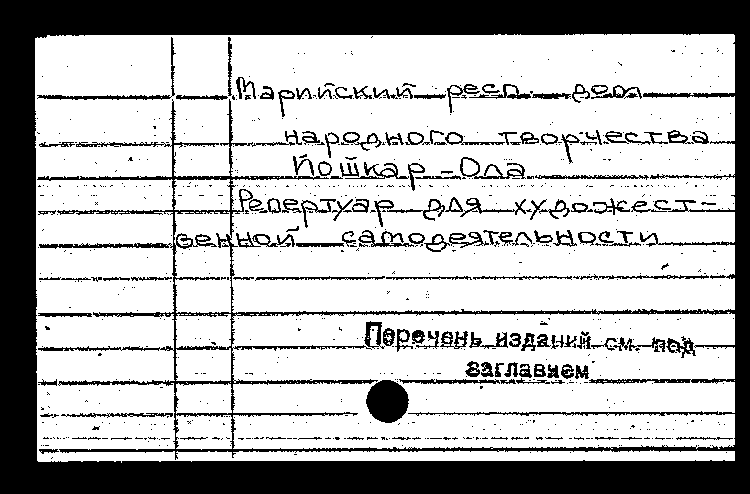 Марийский респ. дом
народного творчества
Йошкар-Ола
Репертуар для художест-
венной самодеятельности
Перечень изданий см. под
заглавием